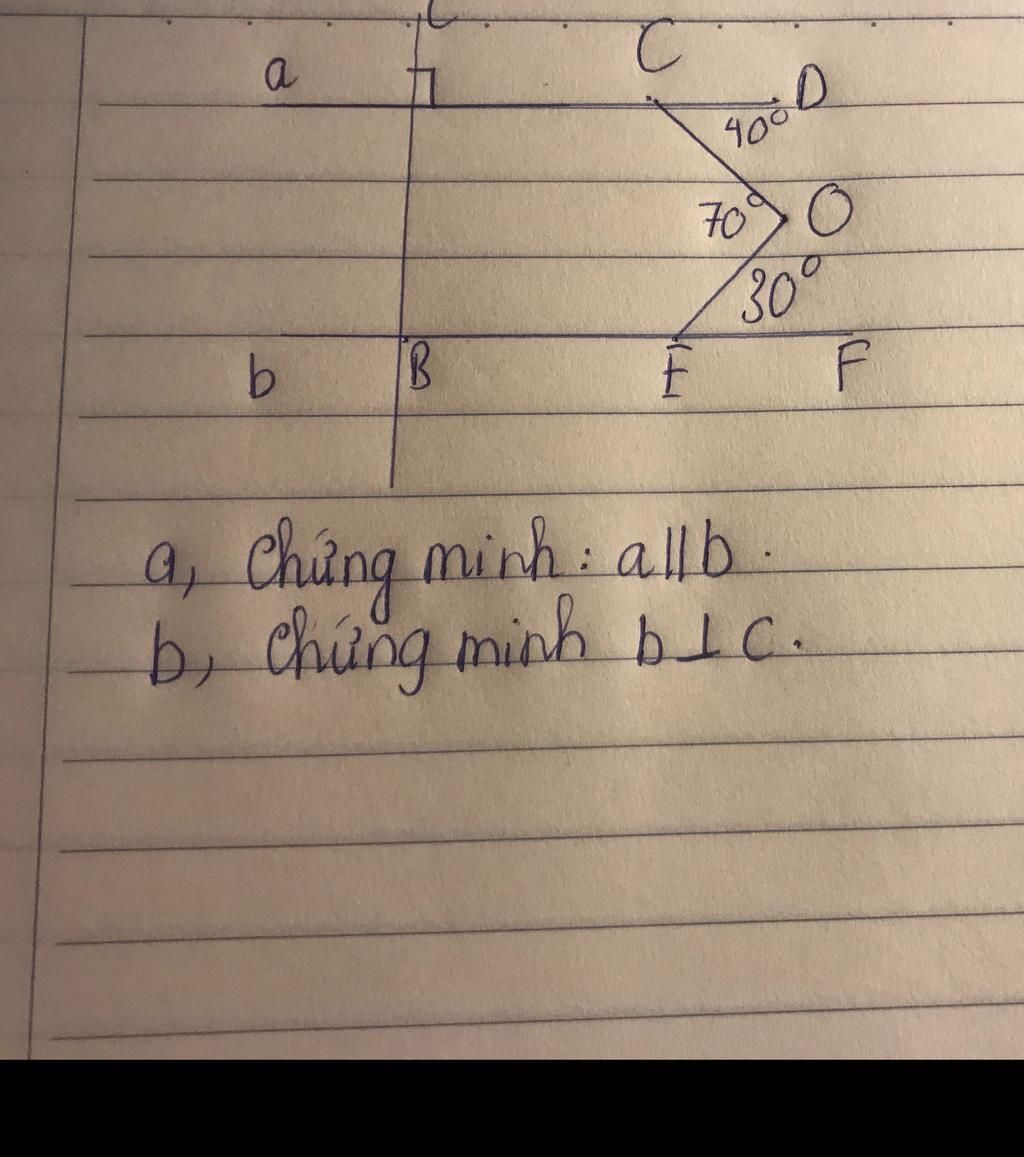 c
C
a
D
40°
70°
O
30°
b
B
E
F
a, Chứng minh: a||b.
b, Chứng minh b⊥c.